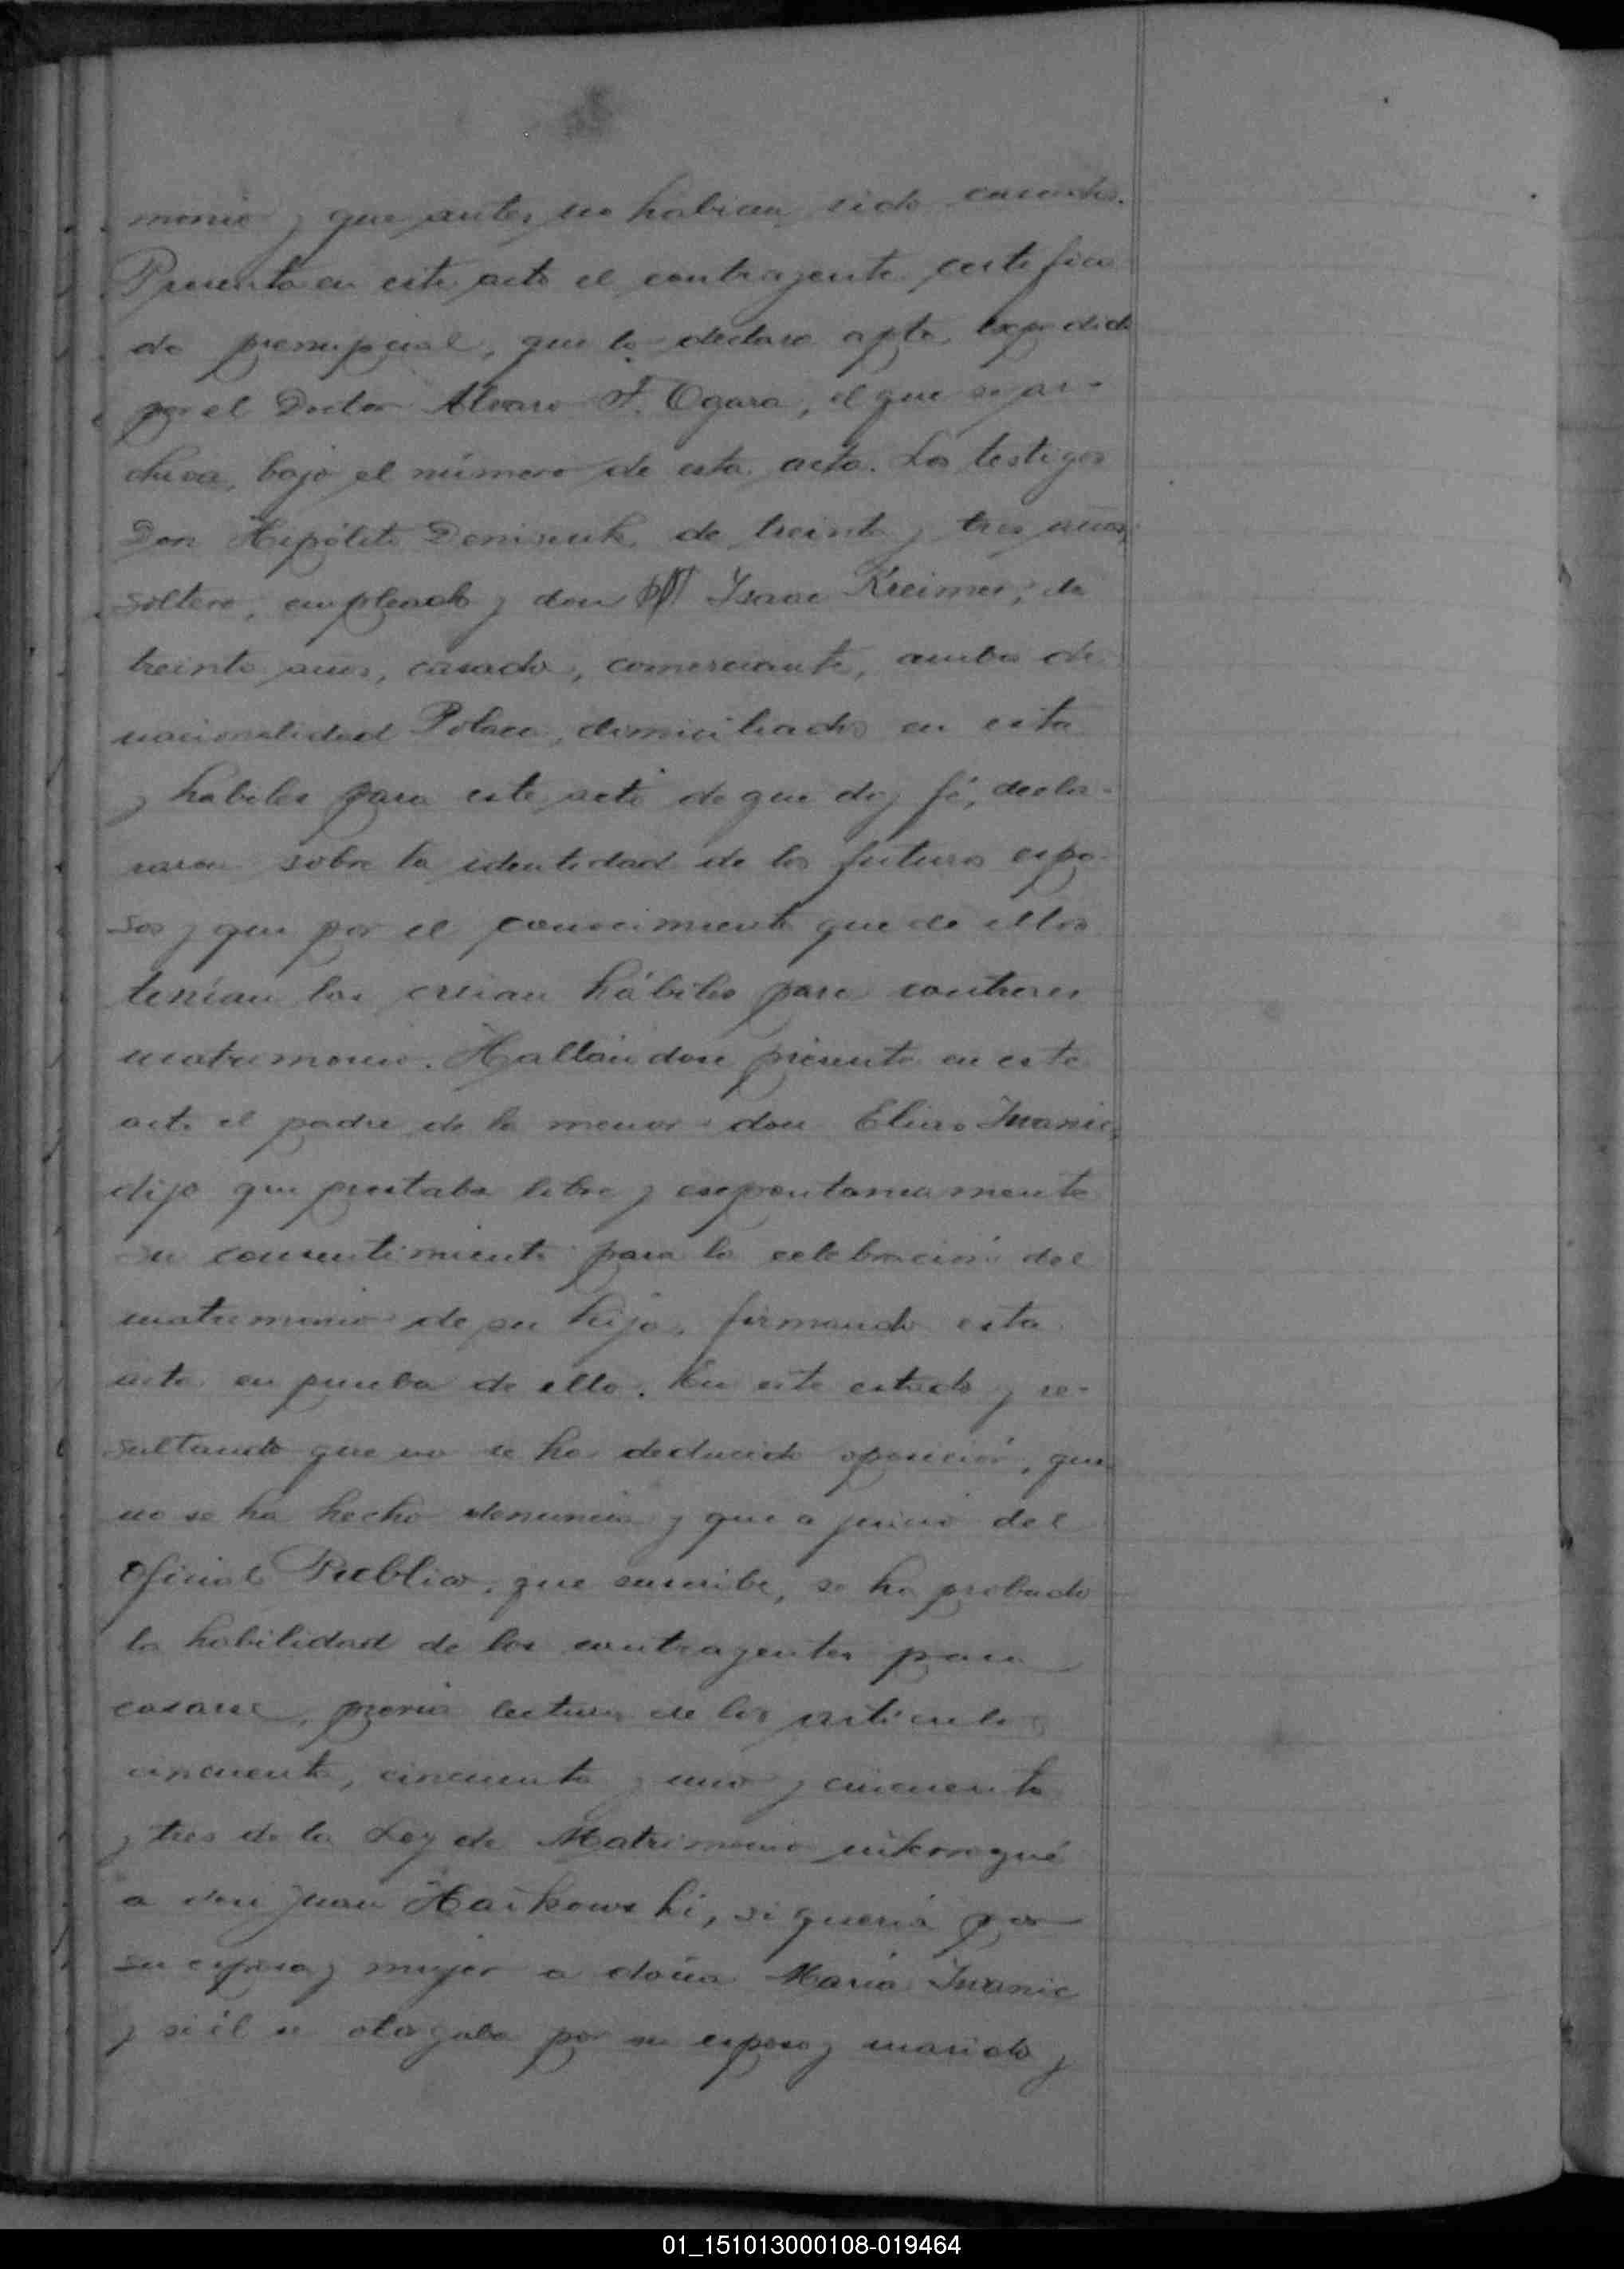 monio y que antes no habían sido casados.
Presenta en este acto el contrayente certifica
do prenupcial, que lo declara apto, expedido
por el Doctor Alvaro F. Ogara, el que se ar-
chiva, bajo el número de esta acta. Los testigos
Don Hipólito Denisiuk, de treinta y tres años,
soltero, empleado y don Isaac Kreimer, de
treinta años, casado, comerciante, ambos de
nacionalidad Polaca, domiciliados en esta
y habiles para este acto de que doy fé, decla-
raron sobre la identidad de los futuros espo-
sos y que por el conocimiento que de ellos
tenían los creian hábiles para contraer
matrimonio. Hallándose presente en este
acto el padre de la menor don Elias Iwanic,
dijo que prestaba libre y espontaneamente
su consentimiento para la celebración del
matrimonio de su hija, firmando esta
acta en prueba de ello. En este estado y re-
sultando que no se ha deducido oposición, que
no se ha hecho denuncia y que a juicio del
Oficial Publico, que suscribe, se ha probado
la habilidad de los contrayentes para
casarse, previa lectura de los articulos
cincuenta, cincuenta y uno y cincuenta
y tres de la Ley de Matrimonio interrogué
a don Juan Haikowski, si quería por
su esposa y mujer a doña María Iwanic
y si él se otorgaba por su esposo y marido y
01_151013000108-019464